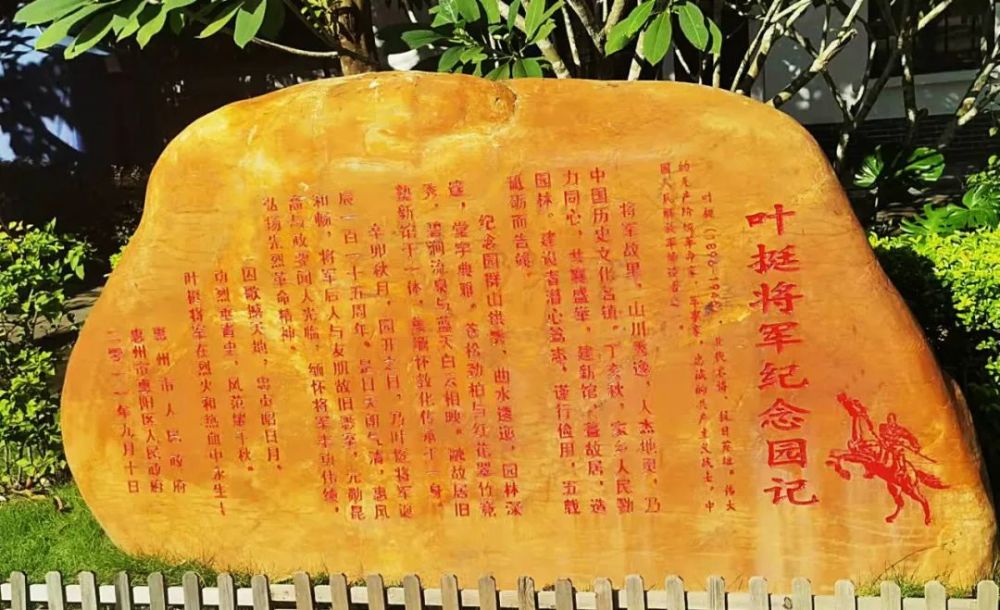 叶挺将军纪念园记
叶挺(1896—1946),北伐名将,抗日英雄。伟大
的无产阶级革命家、军事家,忠诚的共产主义战士,中
国人民解放军缔造者之一。
将军故里,山川秀逸,人杰地灵,乃
中国历史文化名镇。丁亥秋,家乡人民勤
力同心,共襄盛举,建新馆,葺故居,造
园林。建设者潜心益志,谨行俭用,五载
砥砺而告竣。
纪念园群山拱秀,曲水逶迤,园林深
邃,堂宇典雅。苍松劲柏与红花翠竹竞
秀,碧涧流泉与蓝天白云相映。融故居旧
塾新馆于一体,集缅怀教化传承于一身。
辛卯秋月,园开之日,乃叶挺将军诞
辰一百一十五周年。是日天朗气清,惠风
和畅,将军后人与友朋故旧盈室,元勋昆
裔与政要闻人光临,缅怀将军丰功伟绩,
弘扬先烈革命精神。
囚歌撼天地,忠贞昭日月。
功烈垂青史,风范肇千秋。
叶挺将军在烈火和热血中永生!
惠州市人民政府
惠州市惠阳区人民政府
二零一一年九月十日